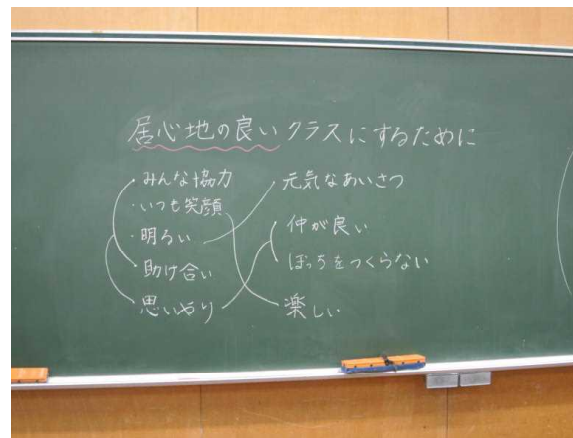 居心地の良いクラスにするために
・みんな協力
・いつも笑顔
・明るい
・助け合い
・思いやり
元気なあいさつ
仲が良い
ぼっちをつくらない
楽しい